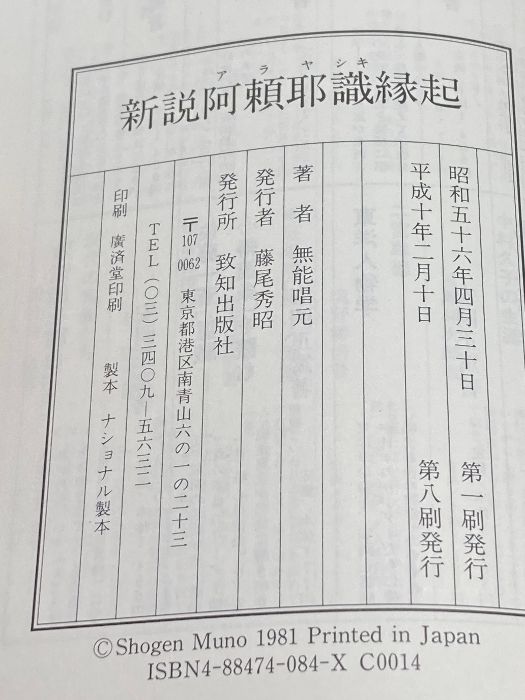 アラヤシキ
新説阿頼耶識縁起
昭和五十六年四月三十日 第一刷発行
平成十年二月十日 第八刷発行
著者 無能唱元
発行者 藤尾秀昭
発行所 致知出版社
〒107-0062 東京都港区南青山六の一の二十三
TEL（〇三）三四〇九―五六三二
印刷 廣済堂印刷 製本 ナショナル製本
©Shogen Muno 1981 Printed in Japan
ISBN4-88474-084-X C0014